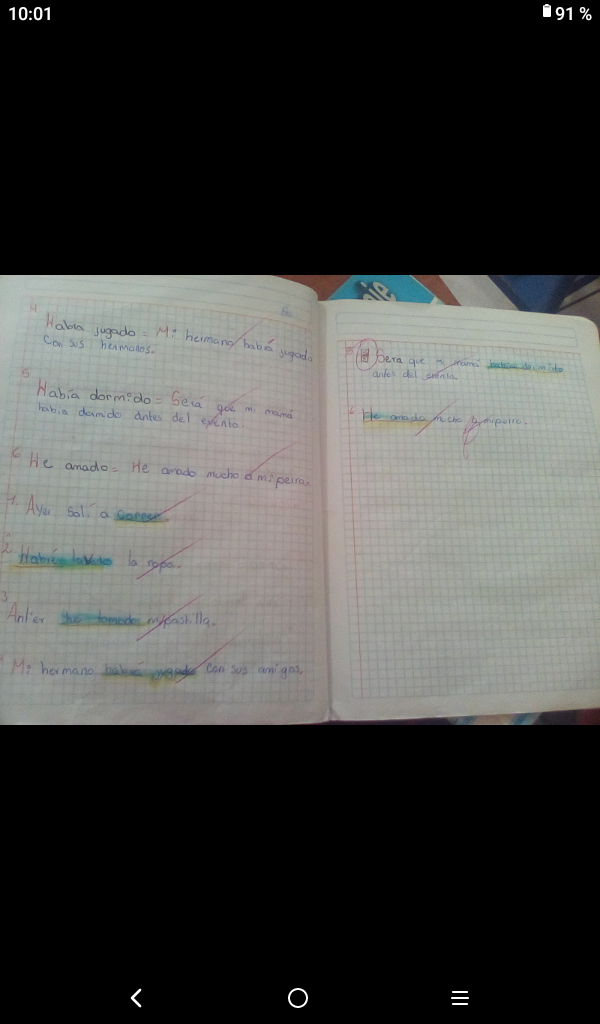 10:01
91 %
4
Habrá jugado = Mi hermano habrá jugado
con sus hermanos.
5
Había dormido = Será que mi mamá
había dormido antes del evento.
6 He amado = He amado mucho a mi perra.
1. Ayer salí a correr.
2 Habré lavado la ropa.
3
Antier he tomado mi pastilla.
Mi hermano habrá jugado con sus amigos.
5 Sera que mi mamá había dormido
antes del evento.
6 He amado mucho a mi perra.